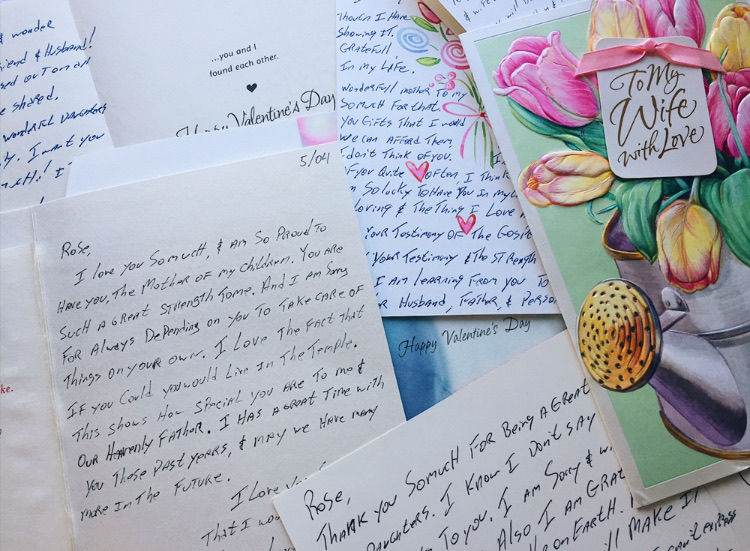 wonder
Friend & Husband!
out on an
we shared.
wonderful Daughters
I want you
...you and I
found each other.
Happy Valentine's Day
Though I Have
Showing IT.
Gratefull
In my Life.
Wonderfull mother To my
So much For that.
You Gifts That I would
We can Afford Them
I don't Think of you.
IF you Quite Often I Think
So lucky To Have You In my
Loving & The Thing I Love
Your Testimony OF The Gospel
Your Testimony & The Strength
I am Learning From you To
Husband, Father, & Person
Happy Valentine's Day
To My
Wife
with Love
5/04
Rose,
I love you So much, & Am So Proud To
Have you, The Mother of my Children. You Are
Such A Great Strength To me. And I Am Sorry
For Always Depending on You To Take Care of
Things on your own. I Love The Fact that
If you Could you would Live In The Temple.
This shows How Special you Are To me &
Our Heavenly Father. I Has A Great Time with
you These Past years, & may we Have many
more In The Future.
I Love You
That I
ke.
Rose,
Thank you So much For Being A Great
Daughters. I Know I Don't Say
To you. I am Sorry &
Also I am
on Earth.
make IT
can't express